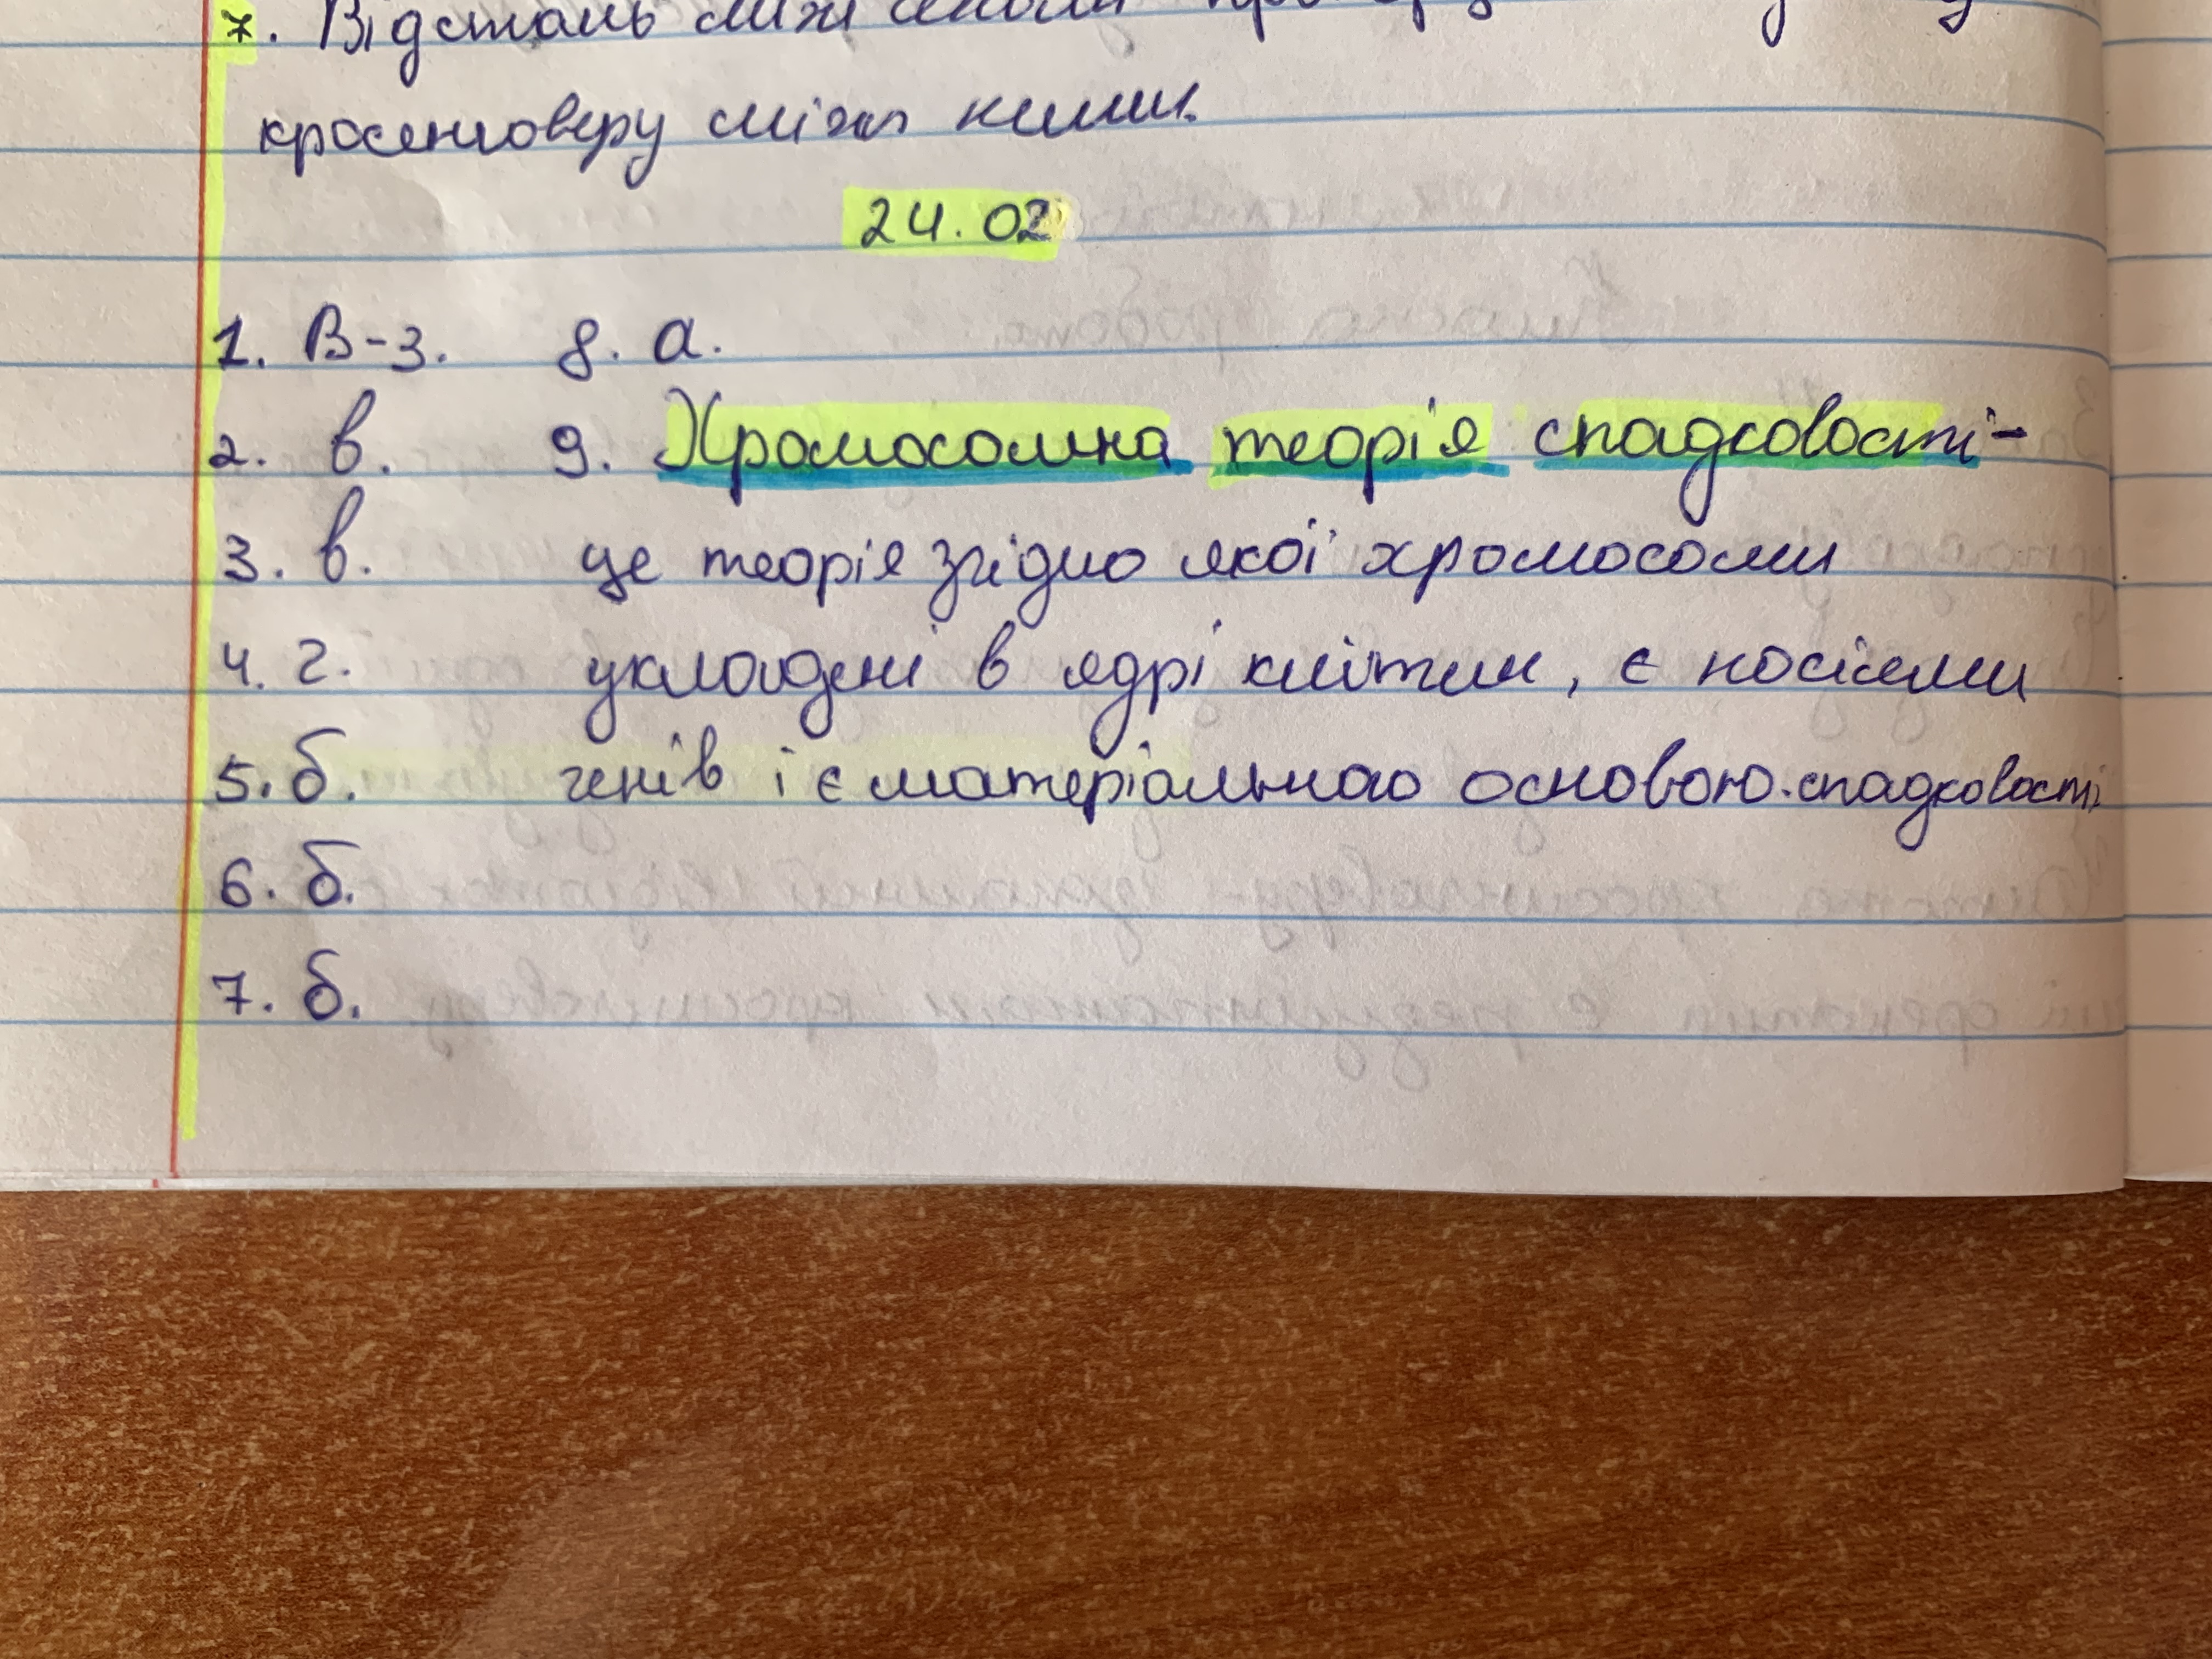 7. Відстань між генами
кросинговеру між ними.
24.02
1. В-3. 8. а.
2. в. 9. Хромосомна теорія спадковості-
3. в. це теорія згідно якої хромосоми
4. г. укладені в ядрі клітин, є носіями
5. б. генів і є матеріальною основою.спадковості
6. б.
7. б.